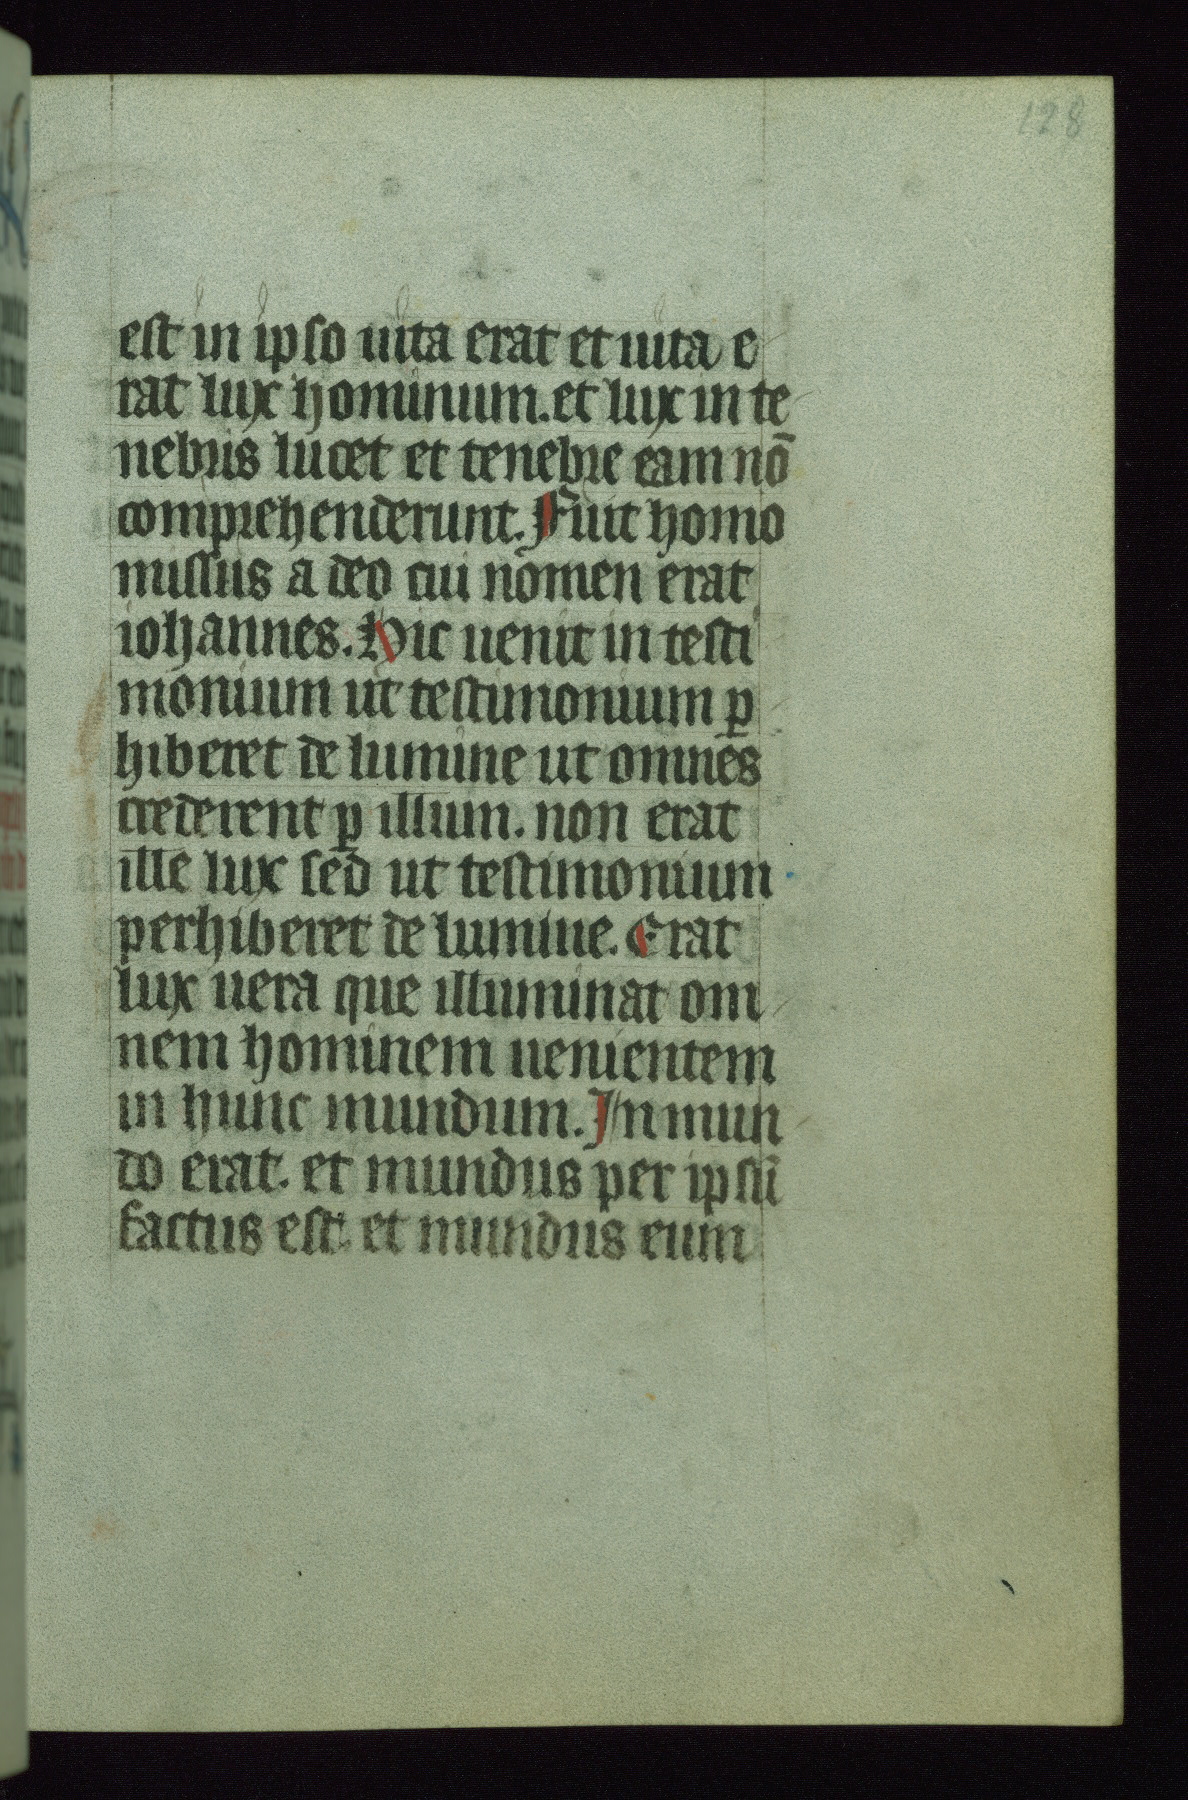 128
est in ipso uita erat et uita e
rat lux hominum. et lux in te
nebris lucet et tenebre eam nō
comprehenderunt. Fuit homo
missus a deo cui nomen erat
iohannes. Hic uenit in testi
monium ut testimonium ꝑ
hiberet de lumine ut omnes
crederent ꝑ illum. non erat
ille lux sed ut testimonium
perhiberet de lumine. Erat
lux uera que illuminat om
nem hominem uenientem
in hunc mundum. In mun
do erat. et mundus per ipsū
factus est. et mundus eum